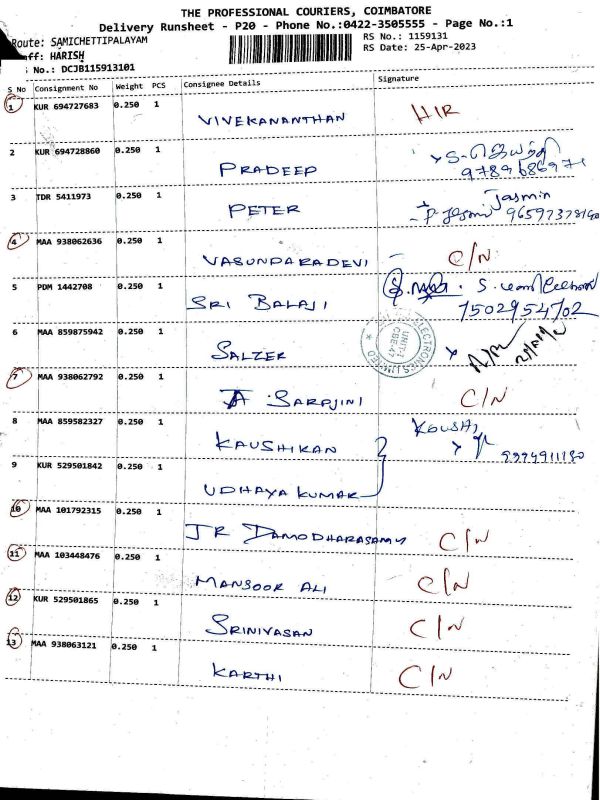 THE PROFESSIONAL COURIERS, COIMBATORE
Delivery Runsheet - P20 - Phone No.:0422-3505555 - Page No.:1
Route: SAMICHETTIPALAYAM
RS No.: 1159131
aff: HARISH
RS Date: 25-Apr-2023
No.: DCJB115913101
S No Consignment No Weight PCS Consignee Details Signature
1 KUR 694727683 0.250 1 VIVEKANANTHAN HIR
2 KUR 694728860 0.250 1 PRADEEP
3 TDR 5411973 0.250 1 PETER Jasmin
4 MAA 938062636 0.250 1 VASUNDARADEVI C/N
5 PDM 1442708 0.250 1 SRI BALAJI 7502954702
6 MAA 859875942 0.250 1 SALZER ELECTRONICS LIMITED UNIT-I
7 MAA 938062792 0.250 1 A SAROJINI C/N
8 MAA 859582327 0.250 1 KAUSHIKAN
9 KUR 529501842 0.250 1 UDHAYA KUMAR
10 MAA 101792315 0.250 1 JR DAMODHARASAMY C/N
11 MAA 103448476 0.250 1 MANSOOR ALI C/N
12 KUR 529501865 0.250 1 SRINIVASAN C/N
13 MAA 938063121 0.250 1 KARTHI C/N